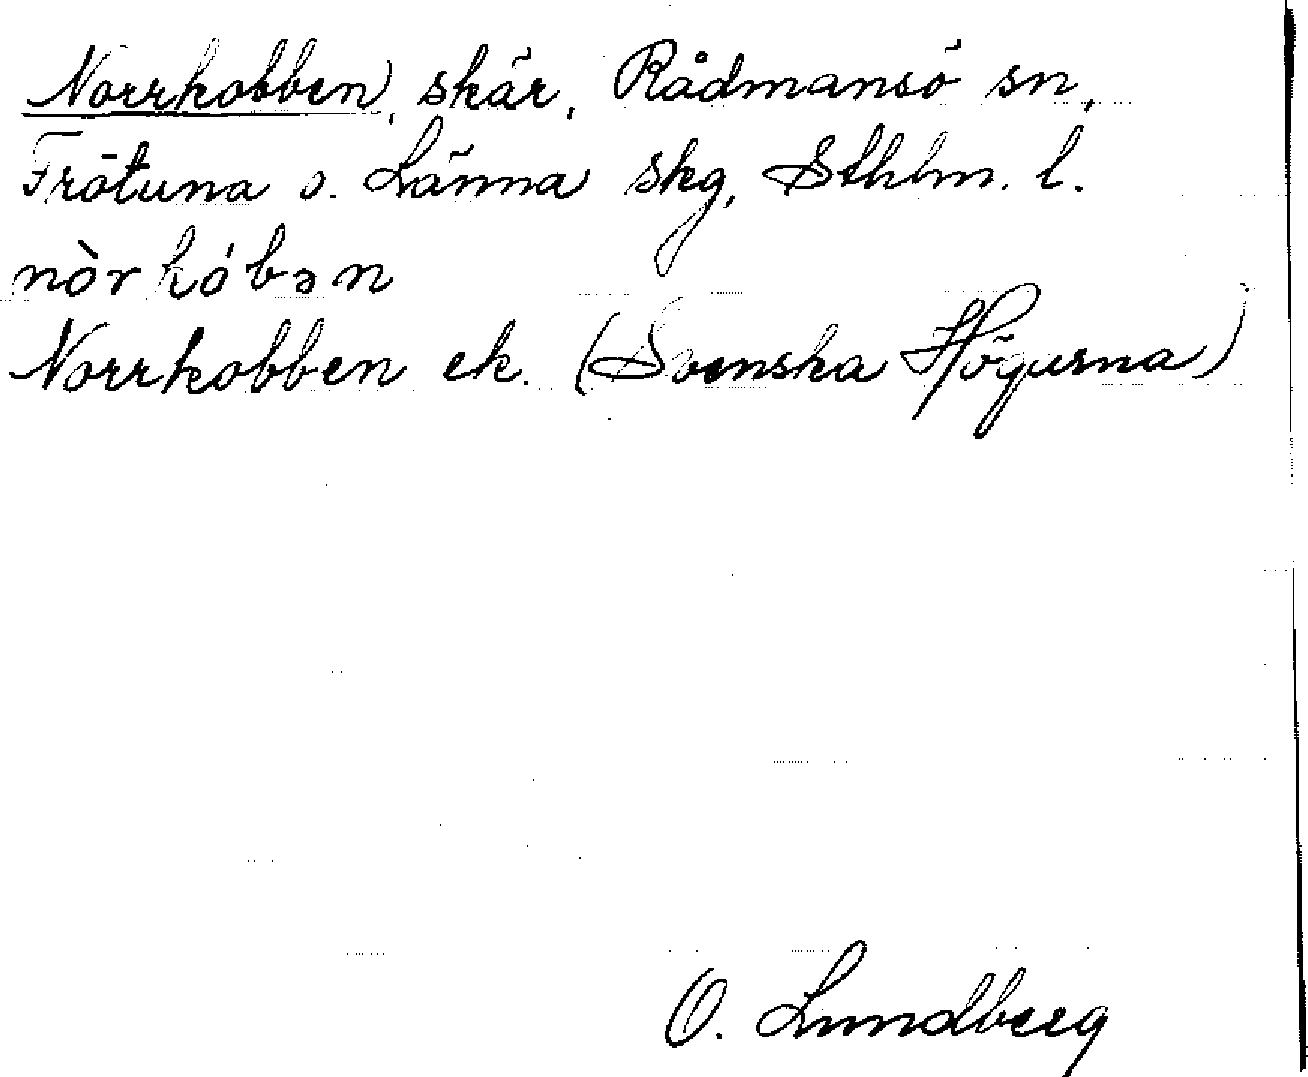 Norrkobben, skär, Rådmansö sn,
Frötuna o. Länna skg, Sthlm. l.
nòrkóbən
Norrkobben ek. (Svenska Högarna)
O. Lundberg